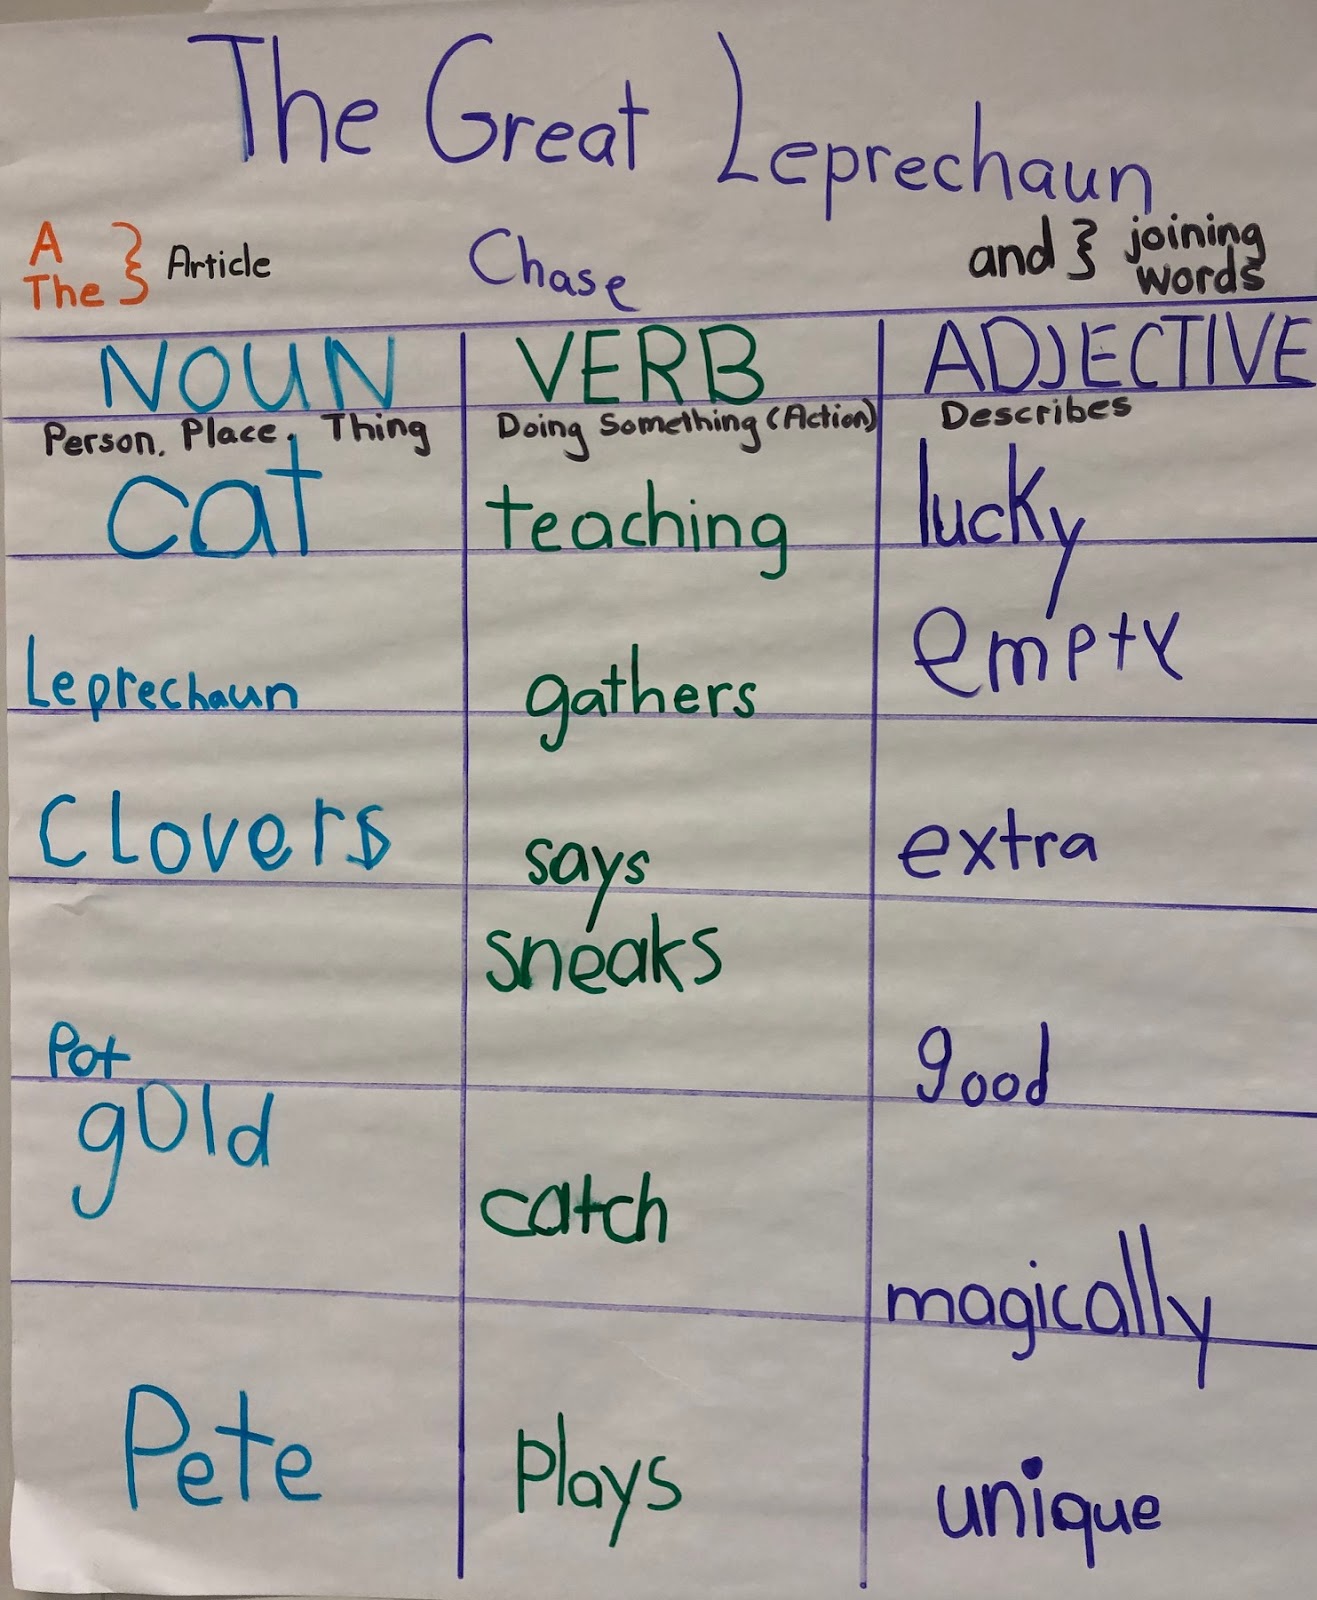 The Great Leprechaun
Chase
A
The } Article
and } joining
words
NOUN VERB ADJECTIVE
Person, Place, Thing Doing Something (Action) Describes
cat teaching lucky
Leprechaun gathers empty
Clovers says extra
sneaks
Pot good
gold
catch
magically
Pete plays unique